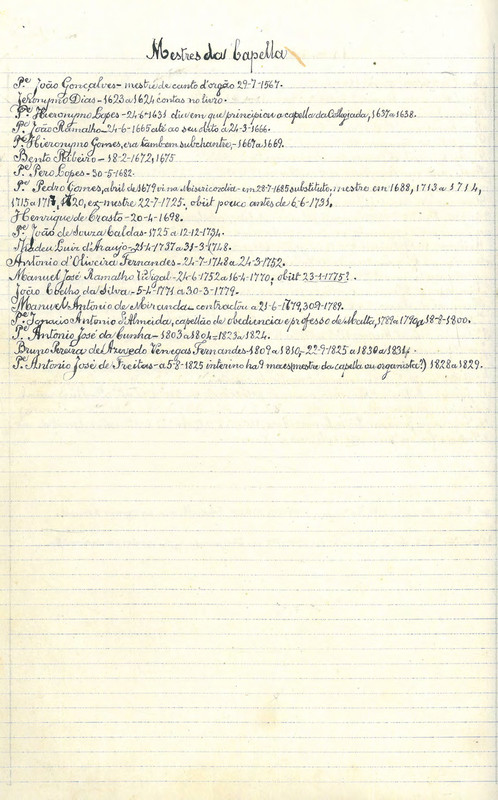 Mestres da Capella
Pe. João Gonçalves - mestre de canto d'orgão 29-7-1567.
Jeronymo Dias - 1623 a 1624 contas no livro.
Pe. Hieronymo Lopes - 24-6-1631 dizem que principiou a capella da Collegiada, 1637 a 1638.
Pe. João Ramalho - 24-6-1665 até ao seu obito a 24-3-1666.
Pe. Hieronymo Gomes, era tambem subchantre, - 1667 a 1669.
Bento Ribeiro - 18-2-1672, 1675
Pe. Pero Lopes - 30-5-1682.
Pe. Pedro Gomes, abril de 1679 vi na Misericordia - em 28-7-1685 substituto, mestre em 1688, 1713 a 1714,
1715 a 1717, 1720, ex-mestre 22-7-1725, obiit pouco antes de 6-6-1731.
Henrique de Crasto - 20-4-1698.
Pe. João de Souza Caldas - 1725 a 12-12-1734.
Thadeu Luiz d'Araujo - 21-4-1737 a 31-3-1748.
Antonio d'Oliveira Fernandes - 24-7-1748 a 24-3-1752.
Manuel José Ramalho - 24-6-1752 a 16-4-1770, obiit 23-1-1775?
João Coelho da Silva - 5-4-1771 a 30-3-1779.
Manuel Antonio de Miranda - contractou a 21-6-1779, 30-9-1789.
Pe. Ignacio Antonio d'Almeida, capellão de obediencia e professo de Malta, 1789 a 1790, a 18-8-1800.
Pe. Antonio José da Cunha - 1803 a 1804 - 1823 a 1824.
Bruno Pereira de Azevedo Venegas Fernandes - 1809 a 1810 - 22-9-1825 a 1830 a 1834.
Pe. Antonio José de Freitas - a 5-8-1825 interino ha 9 mezes (mestre da capella ou organista?) 1828 a 1829.